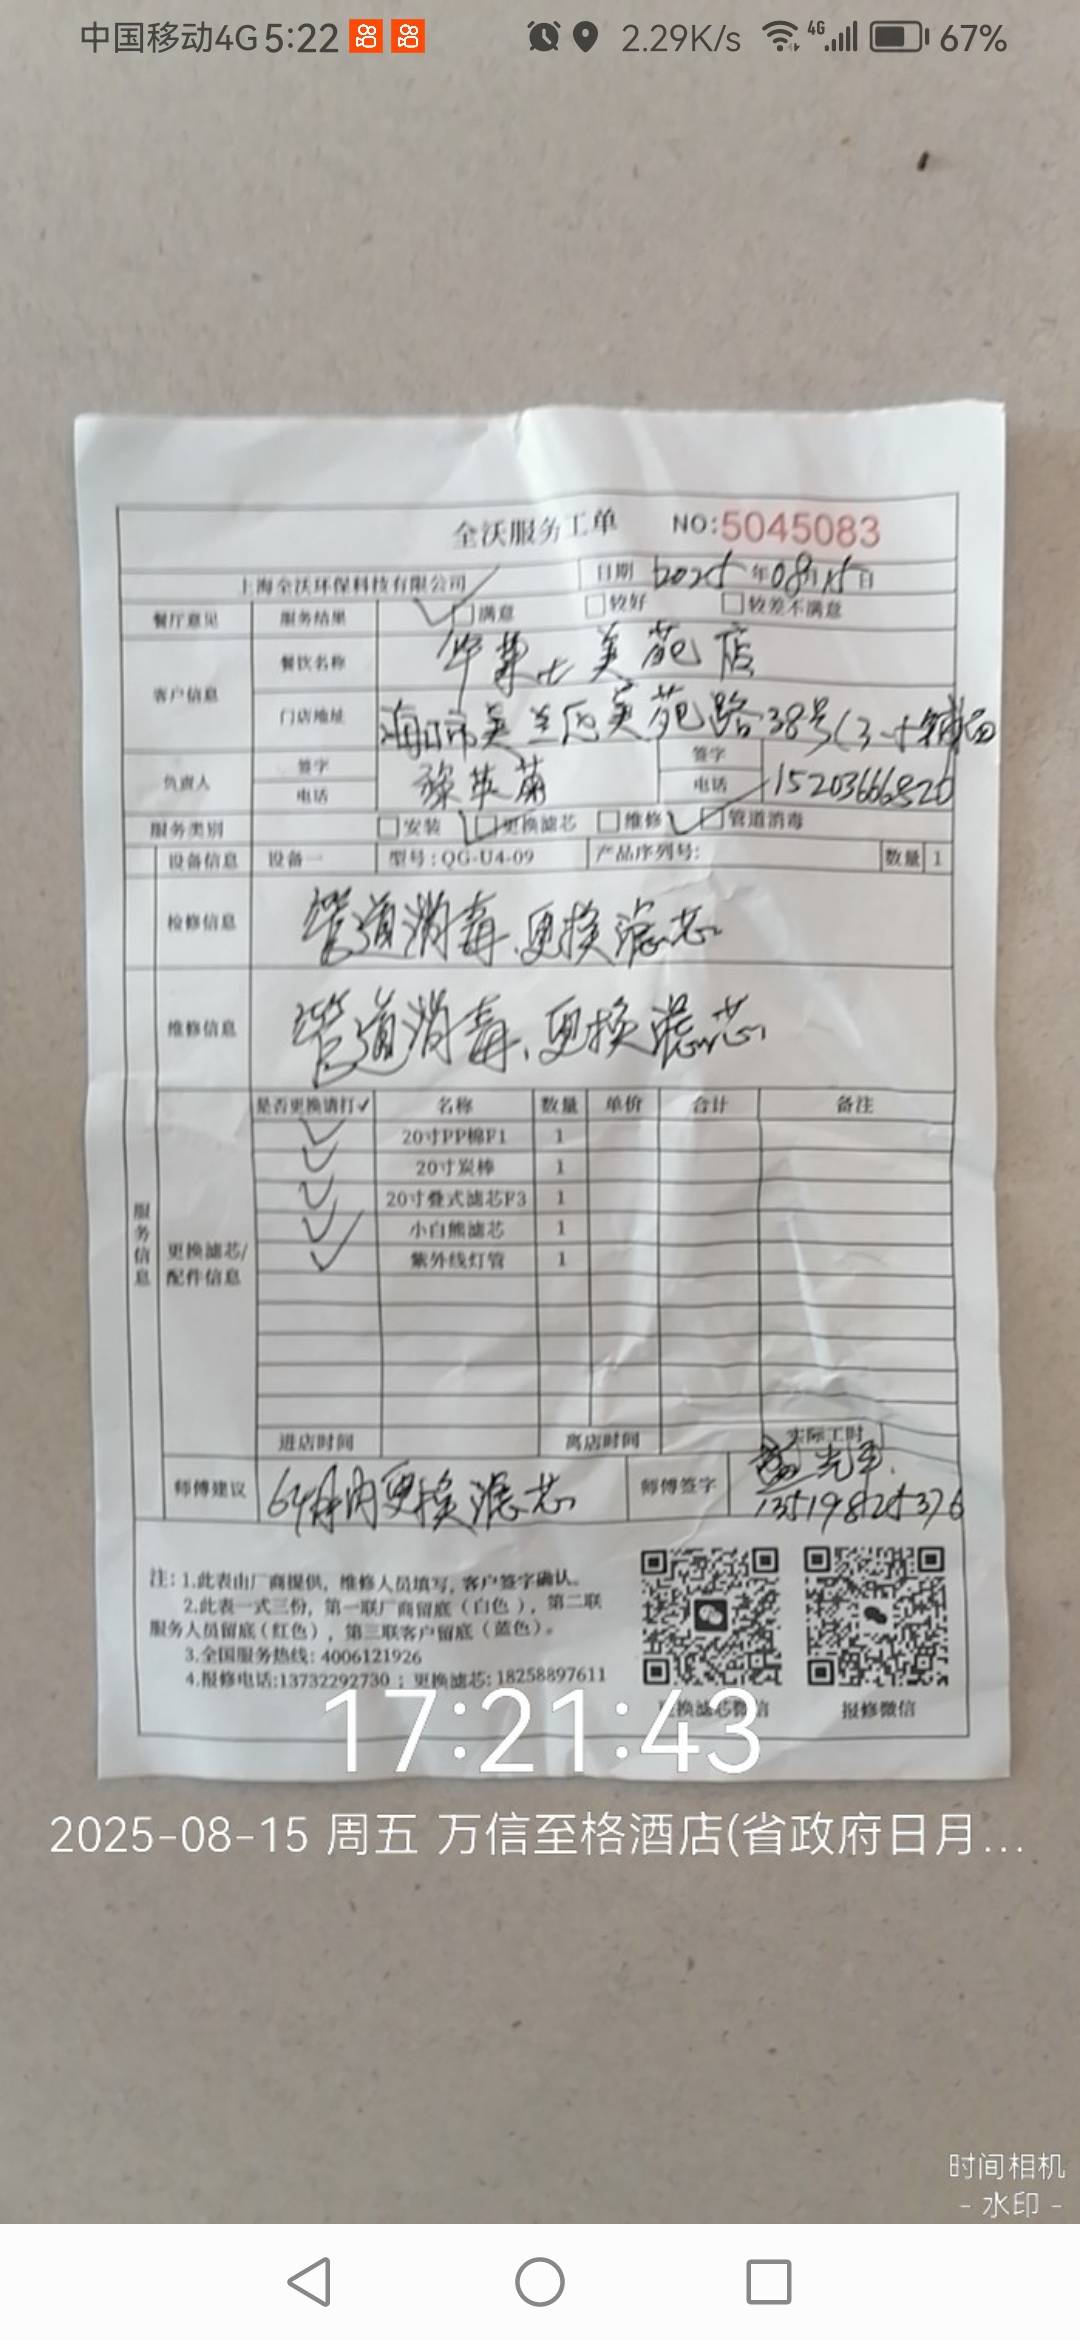 中国移动4G 5:22 2.29K/s 4G 67%
全沃服务工单 NO:5045083
上海全沃环保科技有限公司 日期 2025年08月15日
餐厅意见 服务结果 满意 较好 较差不满意
客户信息 餐饮名称 华莱士美苑店
门店地址 海口市美兰区美苑路38号(3-1铺面
负责人 签字 签字
电话 电话 15203666820
服务类别 安装 更换滤芯 维修 管道消毒
设备信息 设备一 型号:QG-U4-09 产品序列号: 数量 1
检修信息 管道消毒、更换滤芯
维修信息 管道消毒、更换滤芯
服务信息
更换滤芯/配件信息
是否更换请打✓ 名称 数量 单价 合计 备注
✓ 20寸PP棉F1 1
✓ 20寸炭棒 1
✓ 20寸叠式滤芯F3 1
✓ 小白熊滤芯 1
✓ 紫外线灯管 1
进店时间 离店时间 实际工时
师傅建议 6个月内更换滤芯 师傅签字
13519825376
注:1.此表由厂商提供,维修人员填写,客户签字确认。
2.此表一式三份,第一联厂商留底(白色),第二联
服务人员留底(红色),第三联客户留底(蓝色)。
3.全国服务热线:4006121926
4.报修电话:13732292730;更换滤芯:18258897611
更换滤芯微信 报修微信
17:21:43
2025-08-15 周五 万信至格酒店(省政府日月...
时间相机
- 水印 -